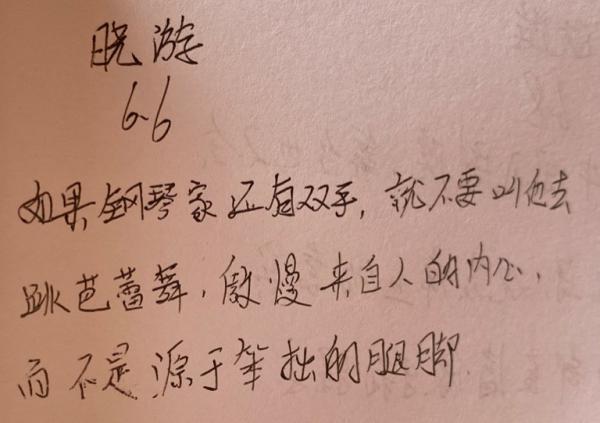 晚游
6-6
如果钢琴家还有双手,就不要叫他去
跳芭蕾舞,傲慢来自人的内心,
而不是源于笨拙的腿脚.